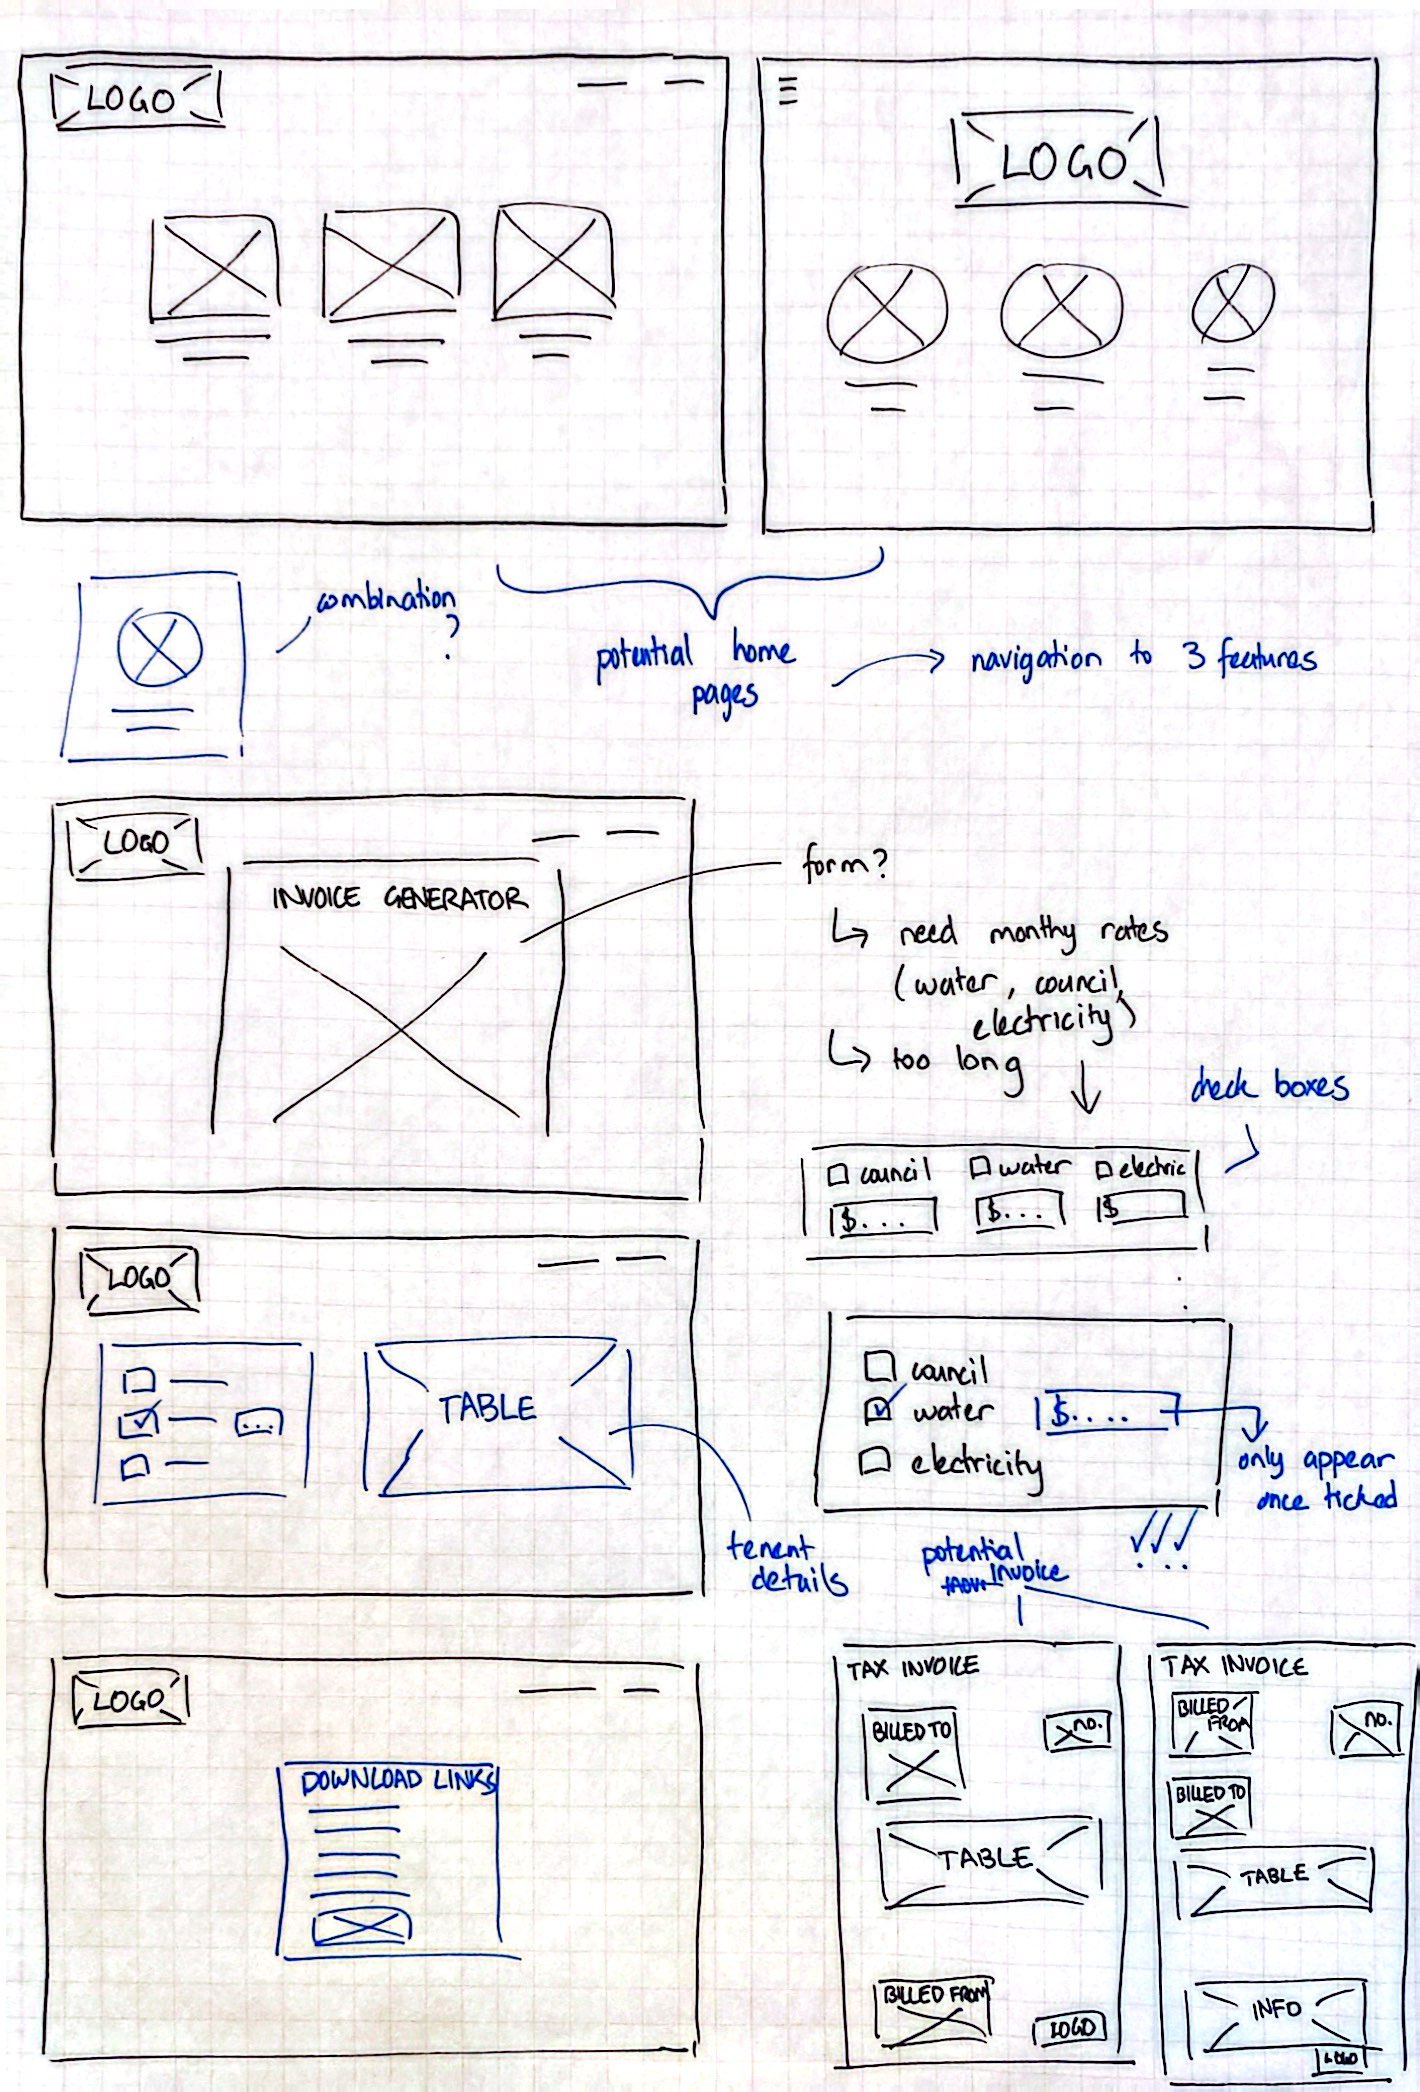 LOGO
LOGO
combination
?
potential home
pages
navigation to 3 features
LOGO
INVOICE GENERATOR
form?
need monthy rates
(water, council,
electricity)
too long
check boxes
council water electric
$... $... $
LOGO
TABLE
...
tenent
details
council
water $....
electricity
only appear
once ticked
potential
invoice
LOGO
DOWNLOAD LINKS
TAX INVOICE
BILLED TO
no.
TABLE
BILLED FROM
LOGO
TAX INVOICE
BILLED
FROM
no.
BILLED TO
TABLE
INFO
LOGO